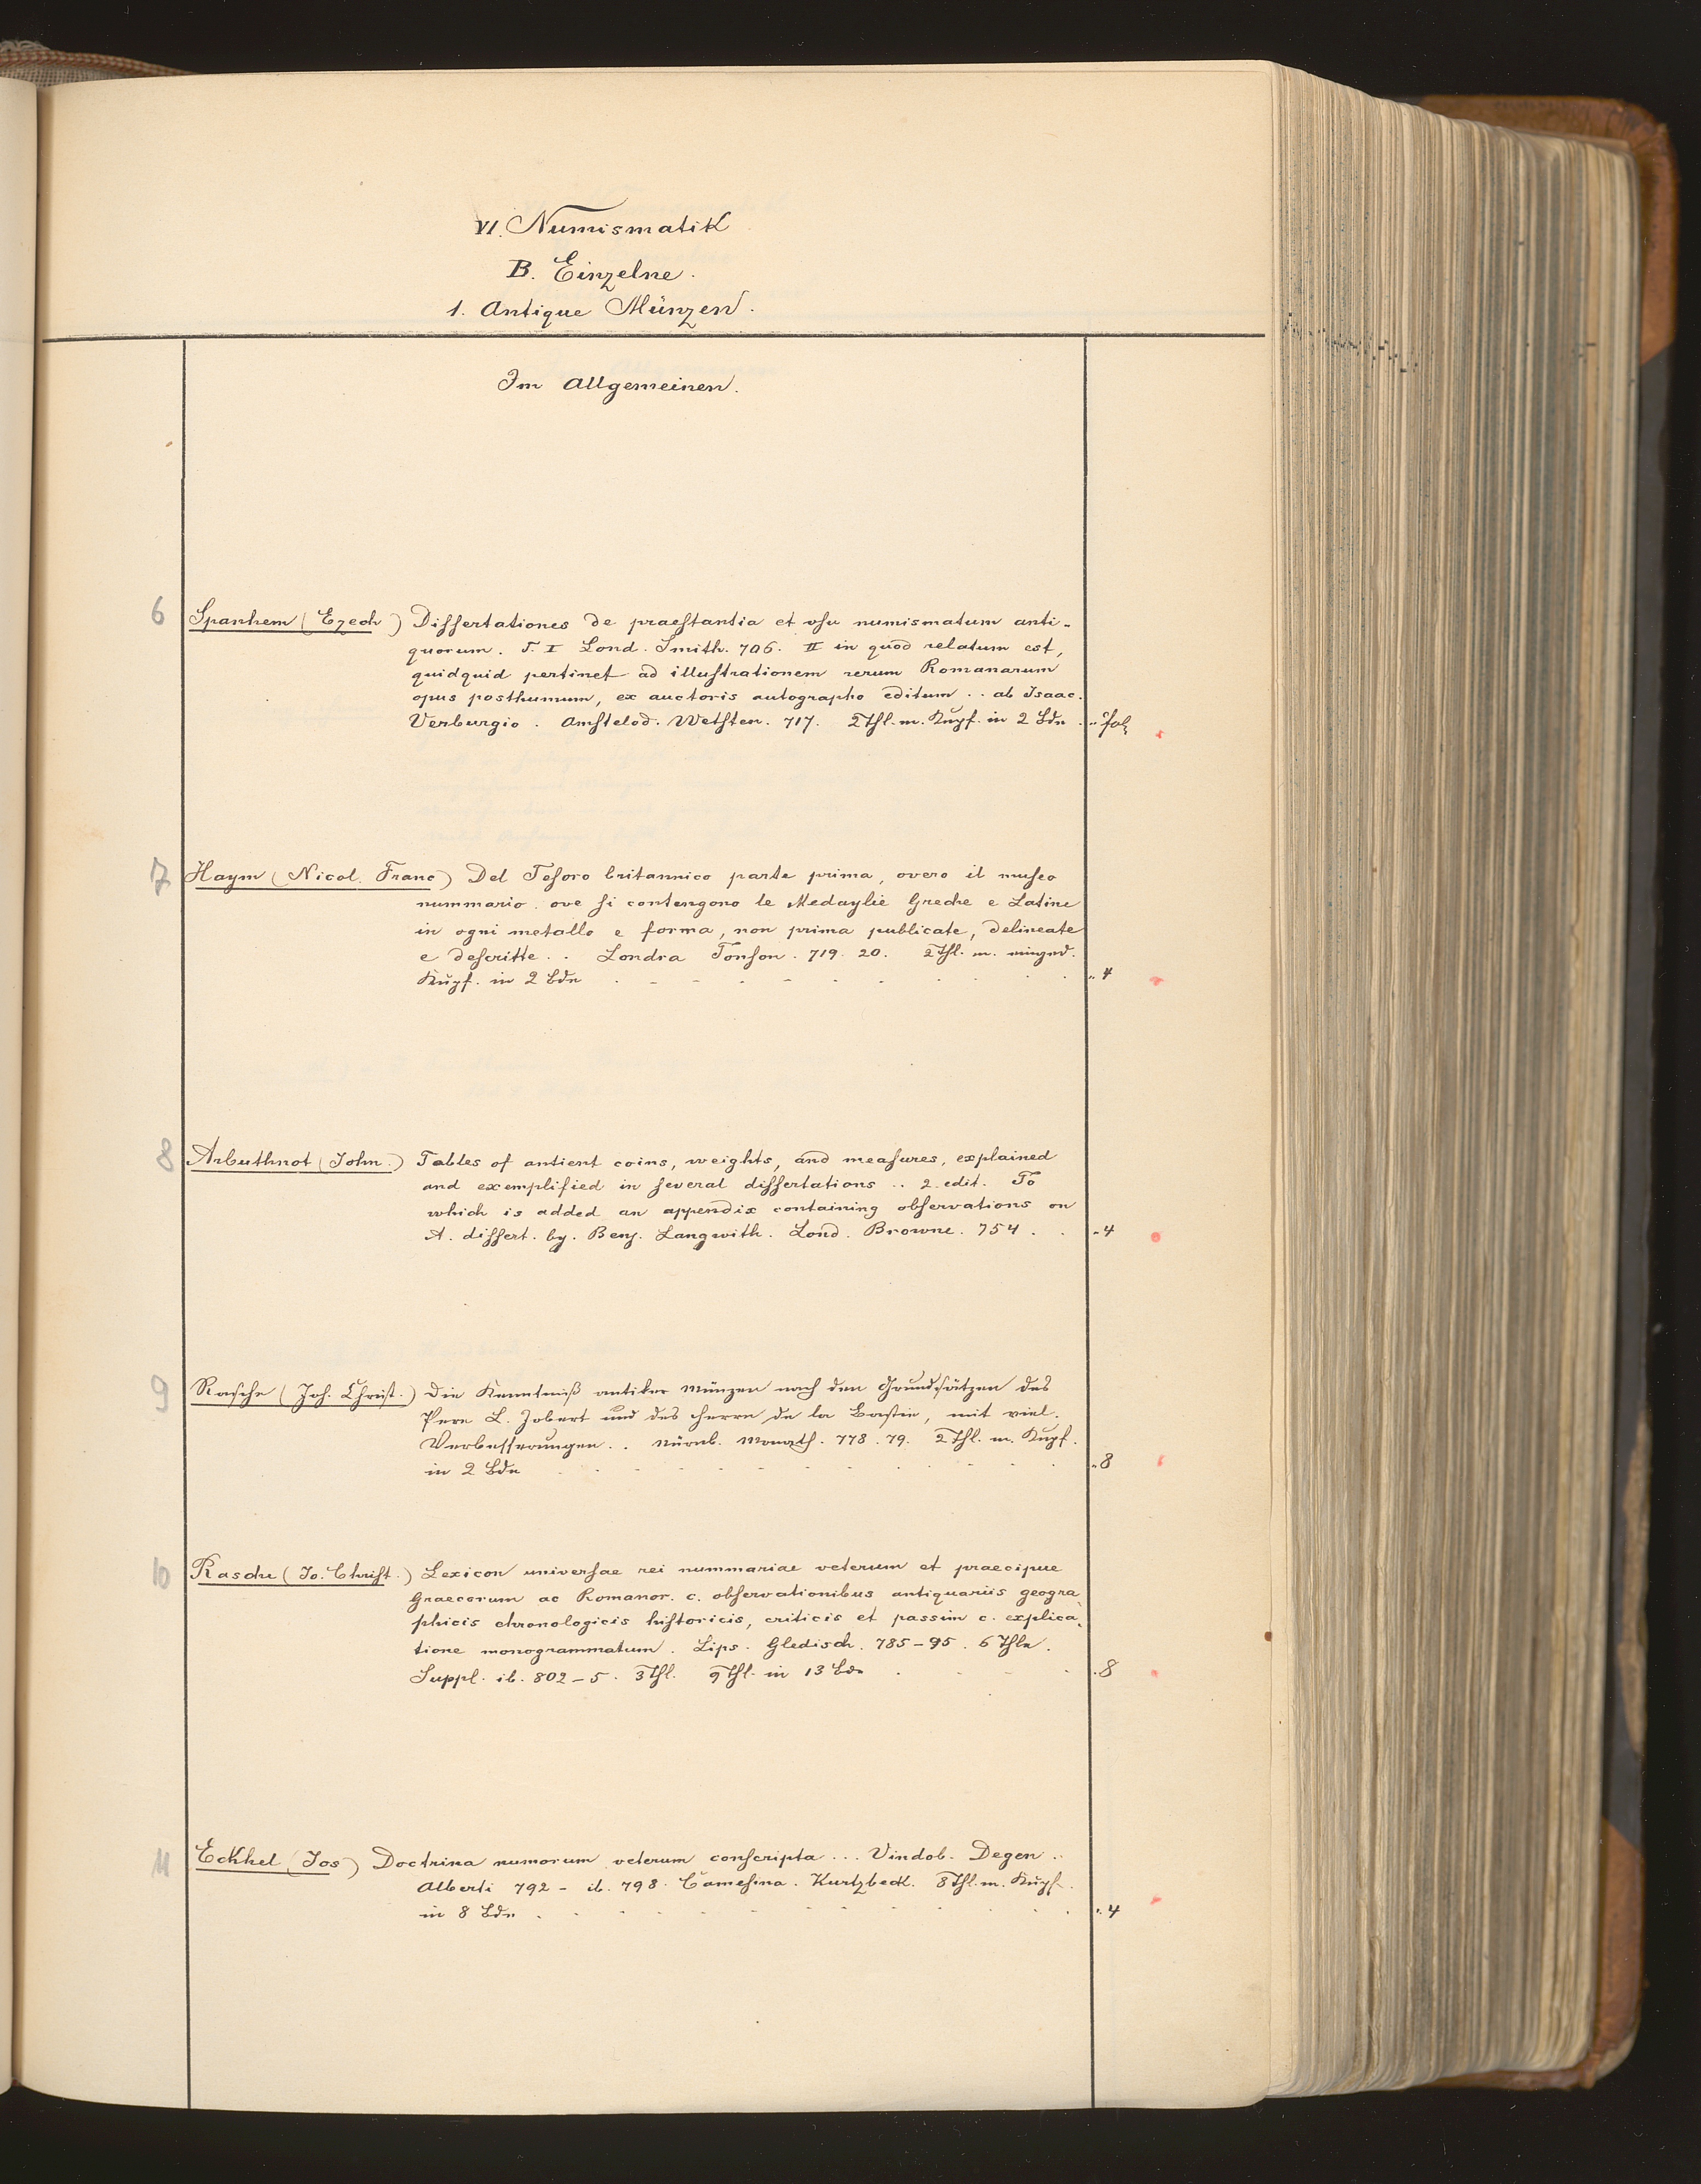 VI. Numismatik
B. Einzelne.
1. Antique Münzen.
Im Allgemeinen.
6 Spanhem (Ezech) Dissertationes de praestantia et usu numismatum anti-
quorum. T. I Lond. Smith. 706. II in quod relatum est,
quidquid pertinet ad illustrationem rerum Romanarum
opus posthumum, ex auctoris autographo editum .. ab Isaac.
Verburgio. Amstelod. Wetsten. 717. 2 Thl. m. Kupf. in 2 Bdn .. Fol
7 Haym (Nicol. Franc) Del Tesoro britannico parte prima, overo il museo
nummario. ove si contengono le Medaylie Greche e Latine
in ogni metallo e forma, non prima publicate, delineate
e descritte .. Londra Tonson. 719. 20. 2 Thl. m. eingedr.
Kupf. in 2 Bdn .. 4
8 Arbuthnot (John.) Tables of antient coins, weights, and measures, explained
and exemplified in several dissertations .. 2. edit. To
which is added an appendix containing observations on
A. dissert. by. Benj. Langwith. Lond. Browne. 754 . . - 4
9 Rasche (Joh. Christ.) Die Kenntniß antiker Münzen nach den Grundsätzen des
Pere L. Jobert und des Herrn de la Bastie, mit viel.
Verbesserungen .. Nürnb. Monath. 778. 79. 2 Thl. m. Kupf.
in 2 Bdn .. 8
10 Rasche (Jo. Christ.) Lexicon universae rei nummariae veterum et praecipue
Graecorum ac Romanor. c. observationibus antiquariis geogra-
phicis chronologicis historicis, criticis et passim c. explica-
tione monogrammatum. Lips. Gledisch. 785-95. 6 Thle.
Suppl. ib. 802-5. 3 Thl. 9 Thl. in 13 Bdn . 8
11 Eckhel (Jos) Doctrina numorum veterum conscripta ... Vindob. Degen ..
Alberti 792 - ib. 798. Camesina. Kurtzbeck. 8 Thl. m. Kupf.
in 8 Bdn .. 4